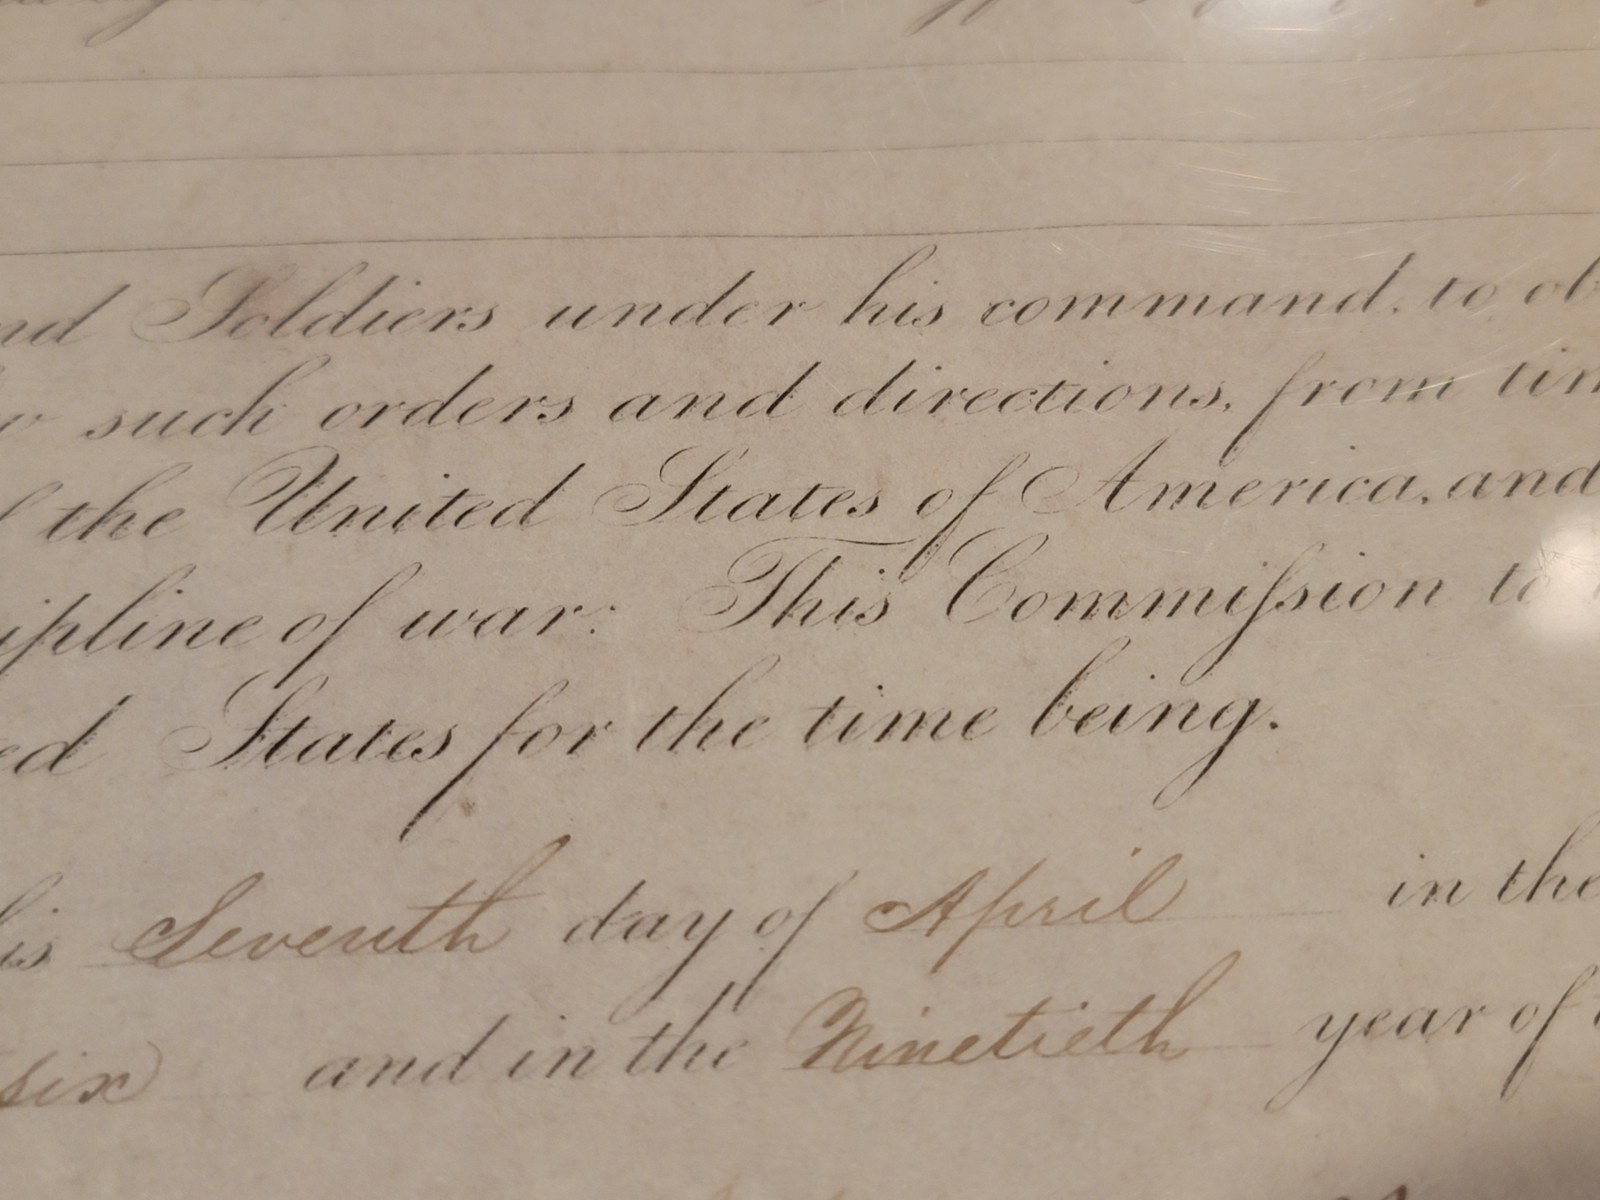 nd Soldiers under his command, to ob
such orders and directions, from tim
the United States of America, and
ipline of war: This Commiſsion to
ed States for the time being.
is Seventh day of April in the
six and in the Ninetieth year of